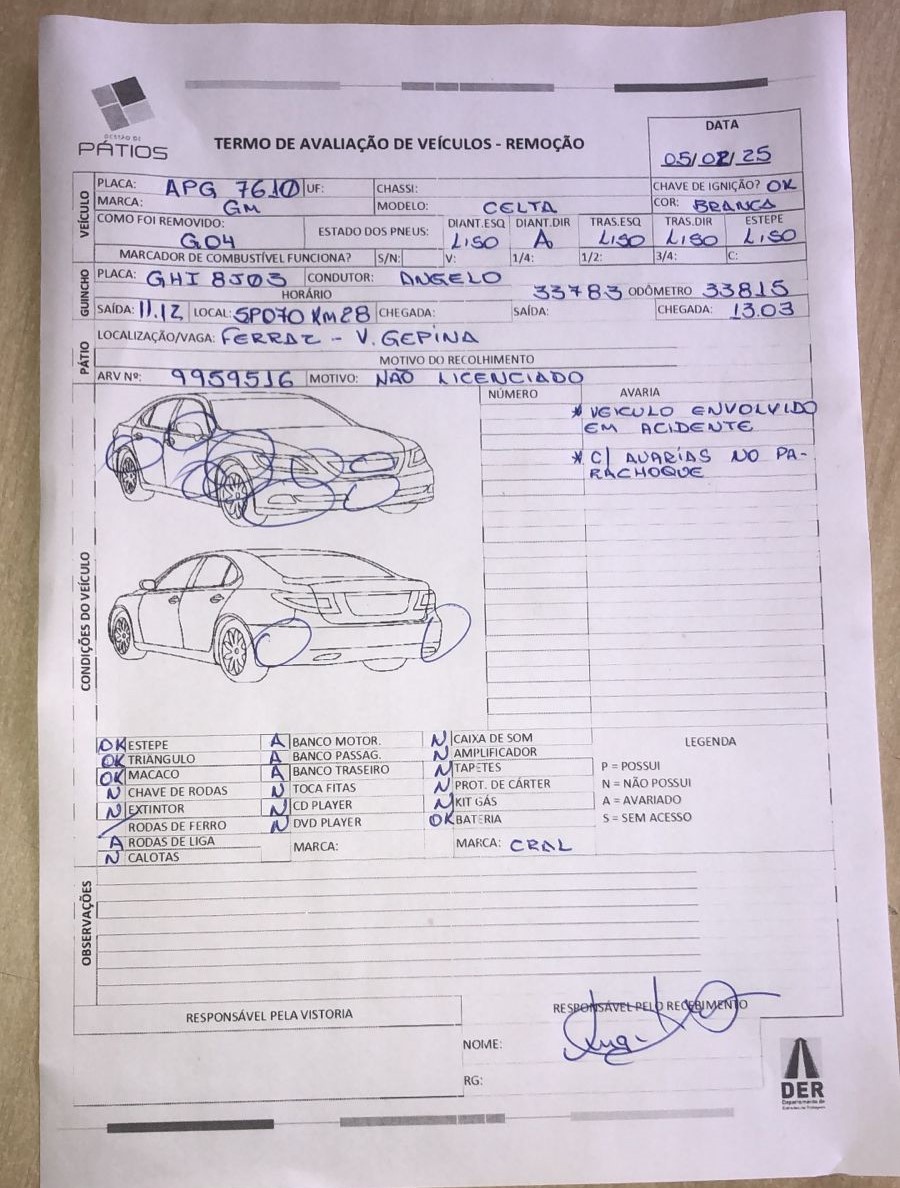 GESTÃO DE
PÁTIOS
TERMO DE AVALIAÇÃO DE VEÍCULOS - REMOÇÃO
DATA
05/02/25
VEÍCULO
PLACA: APG 7610 UF: CHASSI: CHAVE DE IGNIÇÃO? OK
MARCA: GM MODELO: CELTA COR: BRANCA
COMO FOI REMOVIDO: G04 ESTADO DOS PNEUS: DIANT.ESQ LISO DIANT.DIR A TRAS.ESQ LISO TRAS.DIR LISO ESTEPE LISO
MARCADOR DE COMBUSTÍVEL FUNCIONA? S/N: V: 1/4: 1/2: 3/4: C:
GUINCHO
PLACA: GHI 8J03 CONDUTOR: ANGELO
HORÁRIO 33783 ODÔMETRO 33815
SAÍDA: 11.12 LOCAL: SP070 KM28 CHEGADA: SAÍDA: CHEGADA: 13.03
PÁTIO
LOCALIZAÇÃO/VAGA: FERRAZ - V. GEPINA
MOTIVO DO RECOLHIMENTO
ARV Nº: 9959516 MOTIVO: NÃO LICENCIADO
CONDIÇÕES DO VEÍCULO
NÚMERO AVARIA
* VEICULO ENVOLVIDO
EM ACIDENTE
* C/ AVARIAS NO PA-
RACHOQUE
OK ESTEPE A BANCO MOTOR. N CAIXA DE SOM LEGENDA
OK TRIÂNGULO A BANCO PASSAG. N AMPLIFICADOR
OK MACACO A BANCO TRASEIRO N TAPETES P = POSSUI
N CHAVE DE RODAS N TOCA FITAS N PROT. DE CÁRTER N = NÃO POSSUI
N EXTINTOR N CD PLAYER N KIT GÁS A = AVARIADO
RODAS DE FERRO N DVD PLAYER OK BATERIA S = SEM ACESSO
A RODAS DE LIGA MARCA: MARCA: CRAL
N CALOTAS
OBSERVAÇÕES
RESPONSÁVEL PELA VISTORIA RESPONSÁVEL PELO RECEBIMENTO
NOME:
RG:
DER
Departamento de
Estradas de Rodagem